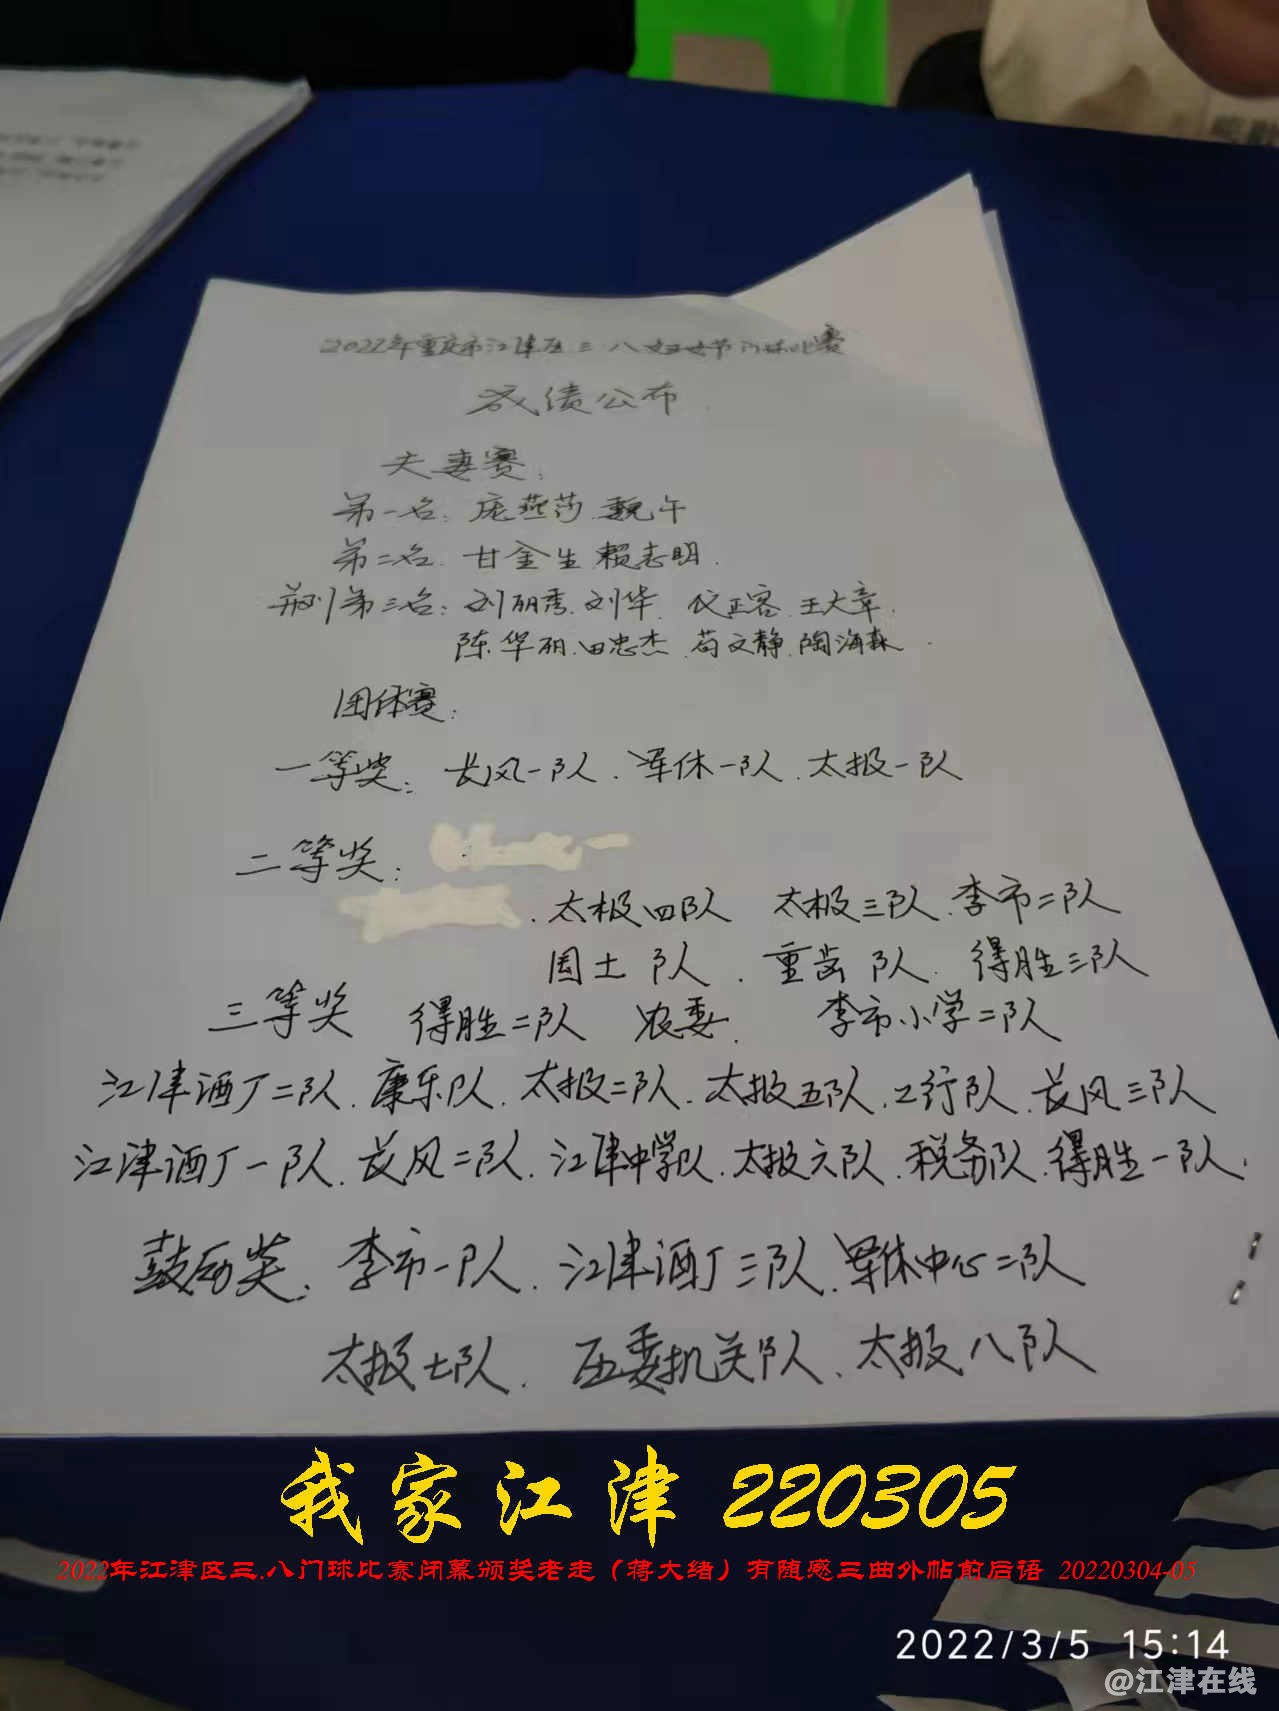 2022年重庆市江津区三八妇女节门球比赛
成绩公布
夫妻赛:
第一名:庞燕莎.魏午
第二名.甘金生 赖志明.
并列第三名:刘丽秀.刘华. 仪正容.王大章.
陈华丽.田忠杰.苟文静.陶海森.
团体赛:
一等奖:长风一队.军休一队.太极一队
二等奖:
.太极四队 太极三队.李市二队
国土队.重齿队.得胜三队
三等奖 得胜二队 农委. 李市小学二队
江津酒厂二队.康乐队.太极二队.太极五队.工行队.长风三队
江津酒厂一队.长风二队.江津中学队.太极六队.税务队.得胜一队.
鼓励奖.李市一队.江津酒厂三队.军休中心二队
太极七队.区委机关队.太极八队
我家江津 220305
2022年江津区三.八门球比赛闭幕颁奖老走（蒋大绪）有随感三曲外帖前后语 20220304-05
2022/3/5 15:14
@江津在线